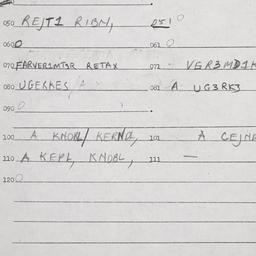 050 REJT1 RIBN, 051 0
060 0 061 0
070 FARVER1MT3R RETAX 072 VGR3MD1K
080 UGERKES 081 A UG3RK3
090 0
100 A KNOBL/ KERNO, 101 A CEJNE
110 A KEPL, KNOBL, 111 —
120 0